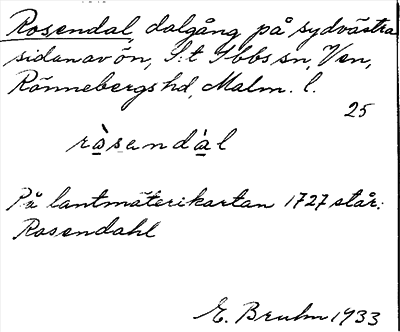 Rosendal, dalgång på sydvästra
sidan av ön, S:t Ibbs sn, Ven,
Rönnebergs hd, Malm. l.
25
ràsandàl
På lantmäterikartan 1727 står:
Rosendahl
E. Bruhn 1933